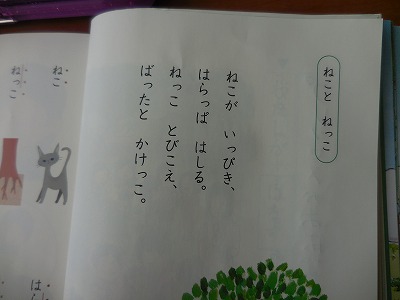 ねこと ねっこ
ねこが いっぴき、
はらっぱ はしる。
ねっこ とびこえ、
ばったと かけっこ。
ねこ
ねっこ